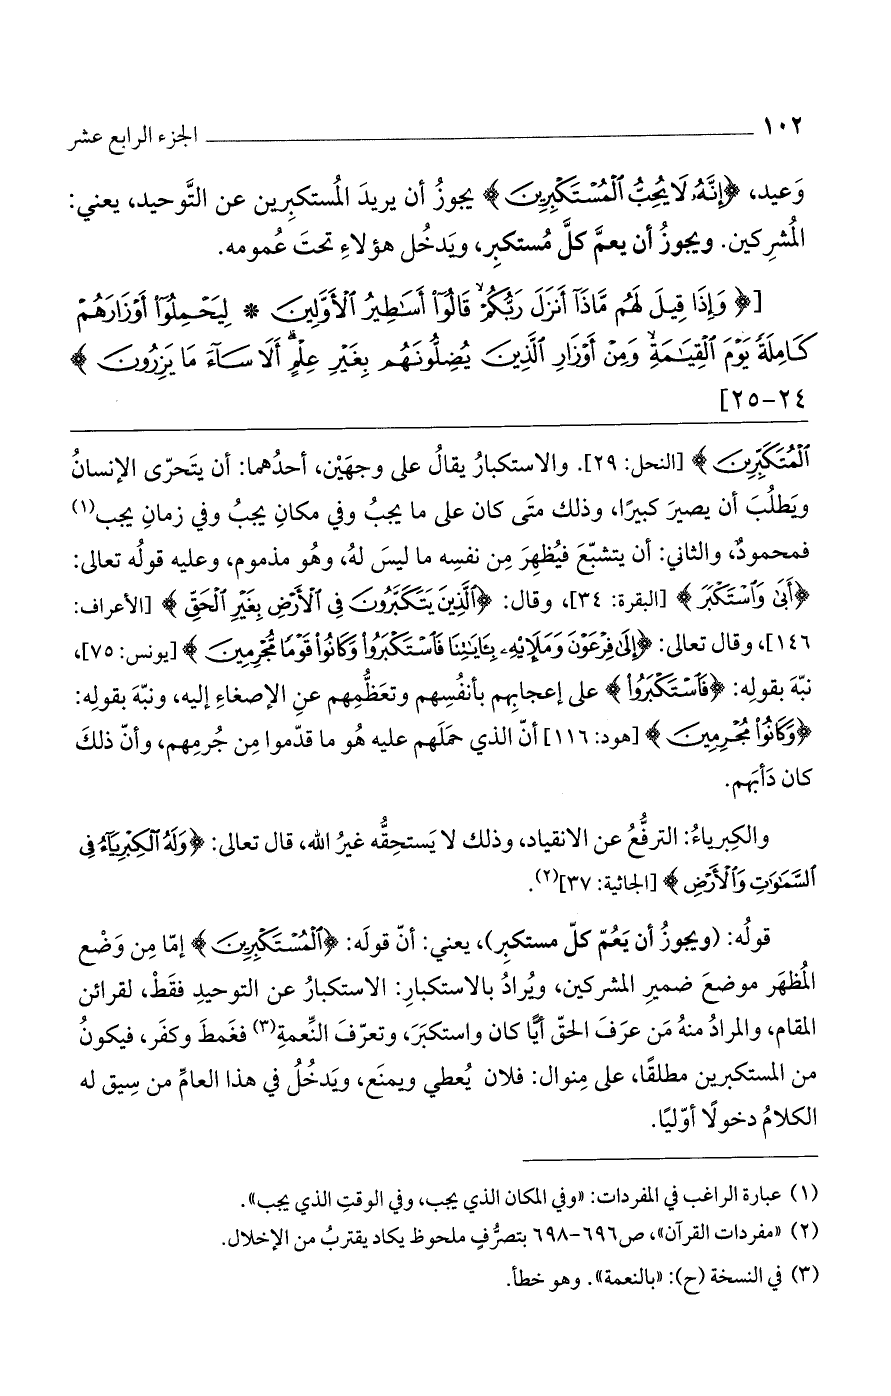 ١٠٢ الجزء الرابع عشر
وَعيد، ﴿إِنَّهُ لَا يُحِبُّ الْمُسْتَكْبِرِينَ﴾ يجوزُ أن يريدَ المُستكبِرين عن التَّوحيد، يعني:
المُشرِكين. ويجوزُ أن يعمَّ كلَّ مُستكبِر، ويَدخُل هؤلاءِ تحتَ عُمومه.
[﴿وَإِذَا قِيلَ لَهُم مَّاذَا أَنزَلَ رَبُّكُمْ ۙ قَالُوا أَسَاطِيرُ الْأَوَّلِينَ * لِيَحْمِلُوا أَوْزَارَهُمْ
كَامِلَةً يَوْمَ الْقِيَامَةِ ۙ وَمِنْ أَوْزَارِ الَّذِينَ يُضِلُّونَهُم بِغَيْرِ عِلْمٍ ۗ أَلَا سَاءَ مَا يَزِرُونَ﴾
٢٤-٢٥]
الْمُتَكَبِّرِينَ﴾ [النحل: ٢٩]. والاستكبارُ يقالُ على وجهَيْن، أحدُهما: أن يتَحرّى الإنسانُ
ويَطلُبَ أن يصيرَ كبيرًا، وذلك متَى كان على ما يجبُ وفي مكانٍ يجبُ وفي زمانٍ يجب(١)
فمحمودٌ، والثاني: أن يتشبّعَ فيُظهِرَ مِن نفسِه ما ليسَ لهُ، وهُو مذموم، وعليه قولُه تعالى:
﴿أَبَى وَاسْتَكْبَرَ﴾ [البقرة: ٣٤]، وقال: ﴿الَّذِينَ يَتَكَبَّرُونَ فِي الْأَرْضِ بِغَيْرِ الْحَقِّ﴾ [الأعراف:
١٤٦]، وقال تعالى: ﴿إِلَى فِرْعَوْنَ وَمَلَإِيْهِ بِآيَاتِنَا فَاسْتَكْبَرُوا وَكَانُوا قَوْمًا مُّجْرِمِينَ﴾ [يونس: ٧٥]،
نبّهَ بقولِه: ﴿فَاسْتَكْبَرُوا﴾ على إعجابِهم بأنفُسِهم وتعَظُّمِهم عنِ الإصغاءِ إليه، ونبّهَ بقولِه:
﴿وَكَانُوا مُجْرِمِينَ﴾ [هود: ١١٦] أنّ الذي حمَلَهم عليه هُو ما قدّموا مِن جُرمِهم، وأنّ ذلكَ
كان دَأبَهم.
والكِبرياءُ: الترفُّعُ عن الانقياد، وذلك لا يَستحِقُّه غيرُ الله، قال تعالى: ﴿وَلَهُ الْكِبْرِيَاءُ فِي
السَّمَاوَاتِ وَالْأَرْضِ﴾ [الجاثية: ٣٧](٢).
قولُه: (ويجوزُ أن يَعُمّ كلّ مستكبِر)، يعني: أنّ قولَه: ﴿الْمُسْتَكْبِرِينَ﴾ إمّا مِن وَضْع
المُظهَر موضعَ ضميرِ المشركين، ويُرادُ بالاستكبارِ: الاستكبارُ عن التوحيدِ فقَطْ، لقرائن
المقام، والمرادُ منهُ مَن عرَفَ الحقّ أيًّا كان واستكبَرَ، وتعرّفَ النِّعمةِ(٣) فغَمطَ وكفَر، فيكونُ
من المستكبرين مطلقًا، على مِنوال: فلان يُعطي ويمنَع، ويَدخُلُ في هذا العامِّ من سِيق له
الكلامُ دخولًا أوّليًا.
(١) عبارة الراغب في المفردات: «وفي المكان الذي يجب، وفي الوقتِ الذي يجب».
(٢) «مفردات القرآن»، ص٦٩٦-٦٩٨ بتصرُّفٍ ملحوظ يكاد يقتربُ من الإخلال.
(٣) في النسخة (ح): «بالنعمة». وهو خطأ.